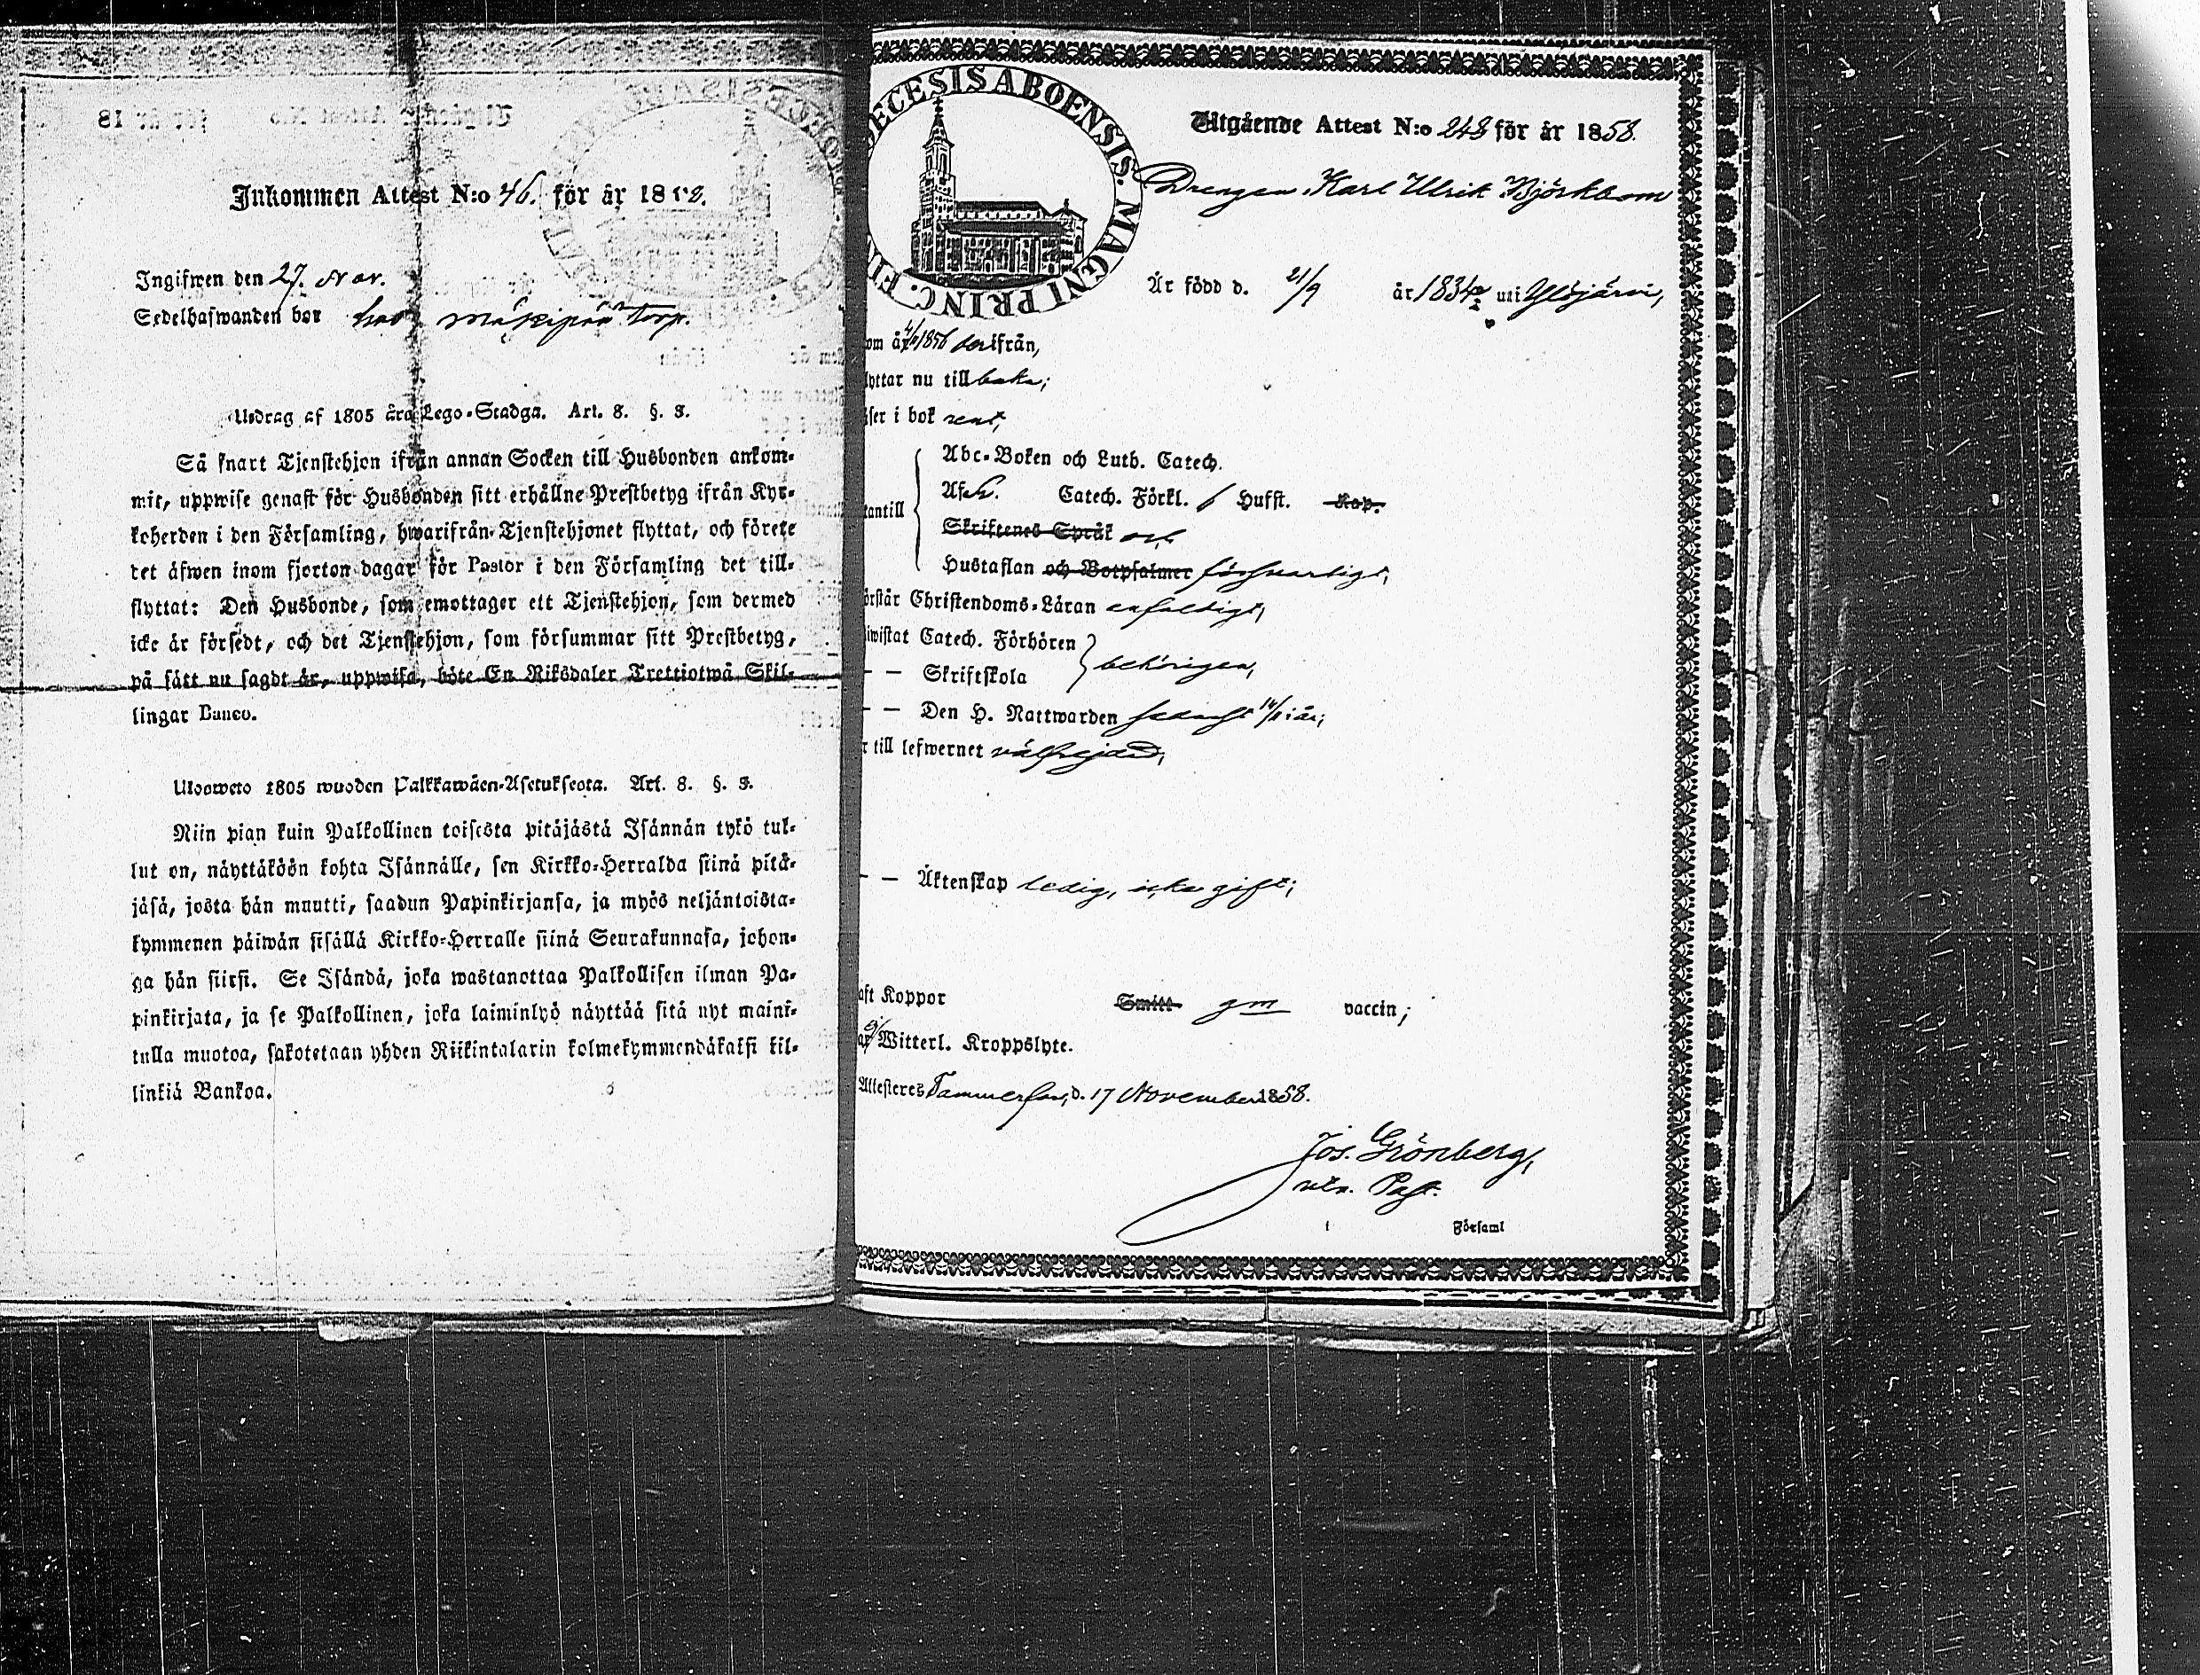 Inkommen Attest N:o 46. för år 18
Ingifwen den 27. Nov.
Sedelhafwanden bor torp.
Utdrag af 1805 års Lego-Stadga. Art. 8. §. 3.
Så snart Tjenstehjon ifrån annan Socken till Husbonden ankom-
mit, uppwise genast för Husbonden sitt erhållne Prestbetyg ifrån Kyr-
koherden i den Församling, hwarifrån Tjenstehjonet flyttat, och förete
det äfwen inom fjorton dagar för Pastor i den Församling det till-
flyttat: Den Husbonde, som emottager ett Tjenstehjon, som dermed
icke är försedt, och det Tjenstehjon, som försummar sitt Prestbetyg,
på sätt nu sagdt är, uppwisa, böte En Riksdaler Trettiotwå Skil-
lingar Banco.
Ulosweto 1805 wuoden Palkkawäen-Asetuksesta. Art. 8. §. 3.
Niin pian kuin Palkollinen toisesta pitäjästä Isännän tykö tul-
lut on, näyttäköön kohta Isännälle, sen Kirkko-Herralda siinä pitä-
jäsä, josta hän muutti, saadun Papinkirjansa, ja myös neljäntoista-
kymmenen päiwän sisällä Kirkko-Herralle siinä Seurakunnasa, johon-
ga hän siirsi. Se Isändä, joka wastanottaa Palkollisen ilman Pa-
pinkirjata, ja se Palkollinen, joka laiminlyö näyttää sitä nyt maini-
tulla muotoa, sakotetaan yhden Riikintalarin kolmekymmendäkaksi kil-
linkiä Bankoa.
ECESIS ABOENSIS. MAGNI PRINC. FIN
Utgående Attest N:o 248 för år 1858.
Drengen Karl Ulrik Björkbom
Är född d. 21/9 år 1834 uti Ylöjärvi,
om år 1856 derifrån,
lyttar nu tillbaka;
äser i bok rent,
Abc-Boken och Luth. Catech.
Catech. Förkl. Hufst. Kap.
tantill
Skriftenes Språk och
Hustaflan och Botpsalmer försvarligt,
örstår Christendoms-Läran enfaldigt,
iwistat Catech. Förhören
behörigen,
— — Skriftskola
— — Den H. Nattwarden senast i år;
r till lefwernet välfrejdad,
— — Äktenskap ledig, icke gift;
aft Koppor Smitt gm vaccin;
Witterl. Kroppslyte.
Attesteres Tammerfors, d. 17 November 1858.
Jos. Grönberg,
v. Past.
i Församl